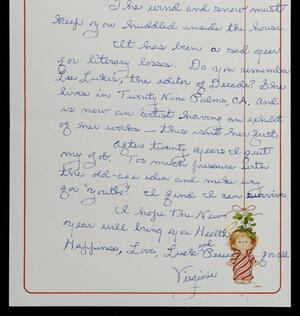 The wind and snow must
keep you huddled inside the house.
It has been a sad year
for literary losses. Do you remember
Lee Lukes, the editor of Decade? She
lives in Twenty Nine Palms, CA. and
is now an artist having an exhibit
of her works - this isn't her first.
After twenty years I quit
my job. Too much pressure with
the old-age idea and make way
for "youth". I find I can survive.
I hope the New
year will bring you Health
Happiness, Love, Luck and Peace, you all
Virginia